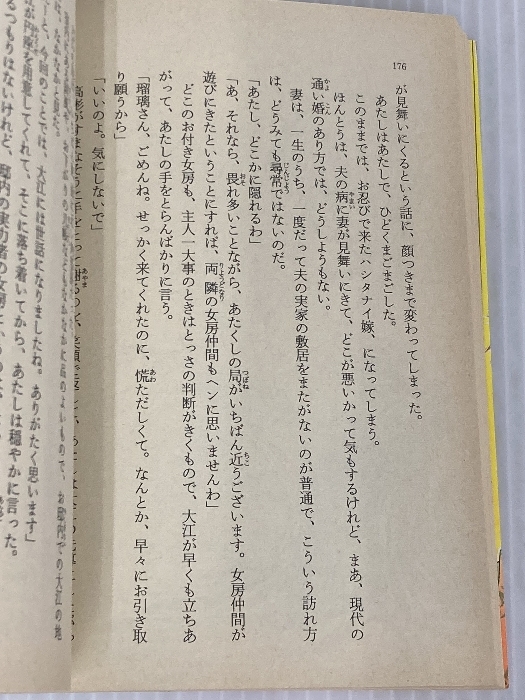 176
が見舞いにくるという話に、顔つきまで変わってしまった。
あたしはあたしで、ひどくまごまごした。
このままでは、お忍びで来たハシタナイ嫁、になってしまう。
ほんとうは、夫の病に妻が見舞いにきて、どこが悪いかって気もするけれど、まあ、現代の
通い婚のあり方では、どうしようもない。
妻は、一生のうち、一度だって夫の実家の敷居をまたがないのが普通で、こういう訪れ方
は、どうみても尋常ではないのだ。
「あたし、どこかに隠れるわ」
「あ、それなら、畏れ多いことながら、あたくしの局がいちばん近うございます。女房仲間が
遊びにきたということにすれば、両隣の女房仲間もヘンに思いませんわ」
どこのお付き女房も、主人一大事のときはとっさの判断がきくもので、大江が早くも立ちあ
がって、あたしの手をとらんばかりに言う。
「瑠璃さん、ごめんね。せっかく来てくれたのに、慌ただしくて。なんとか、早々にお引き取
り願うから」
「いいのよ。気にしないで」
高彬がすまなそうに手を
お邸内での大江の地
大江には世話になりましたね。ありがたく思います」
を用意してくれて、そこに落ち着いてから、あたしは穏やかに言った。
るつもりはないけれど、邸内の実力者の女房に